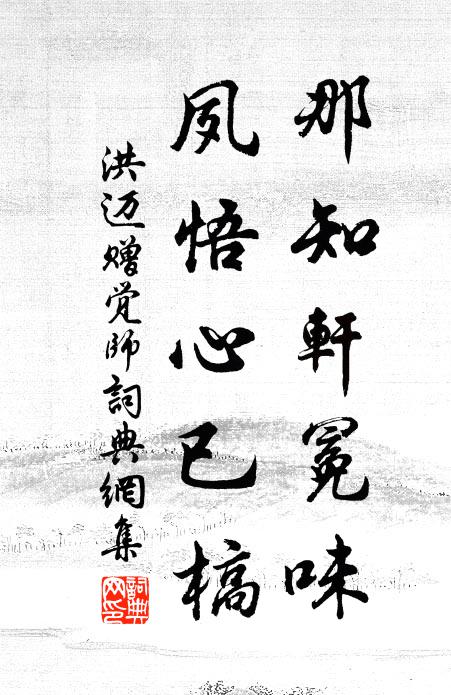 那知軒冕味
夙悟心已槁
洪迈赠觉师詞典網集
詞典网印